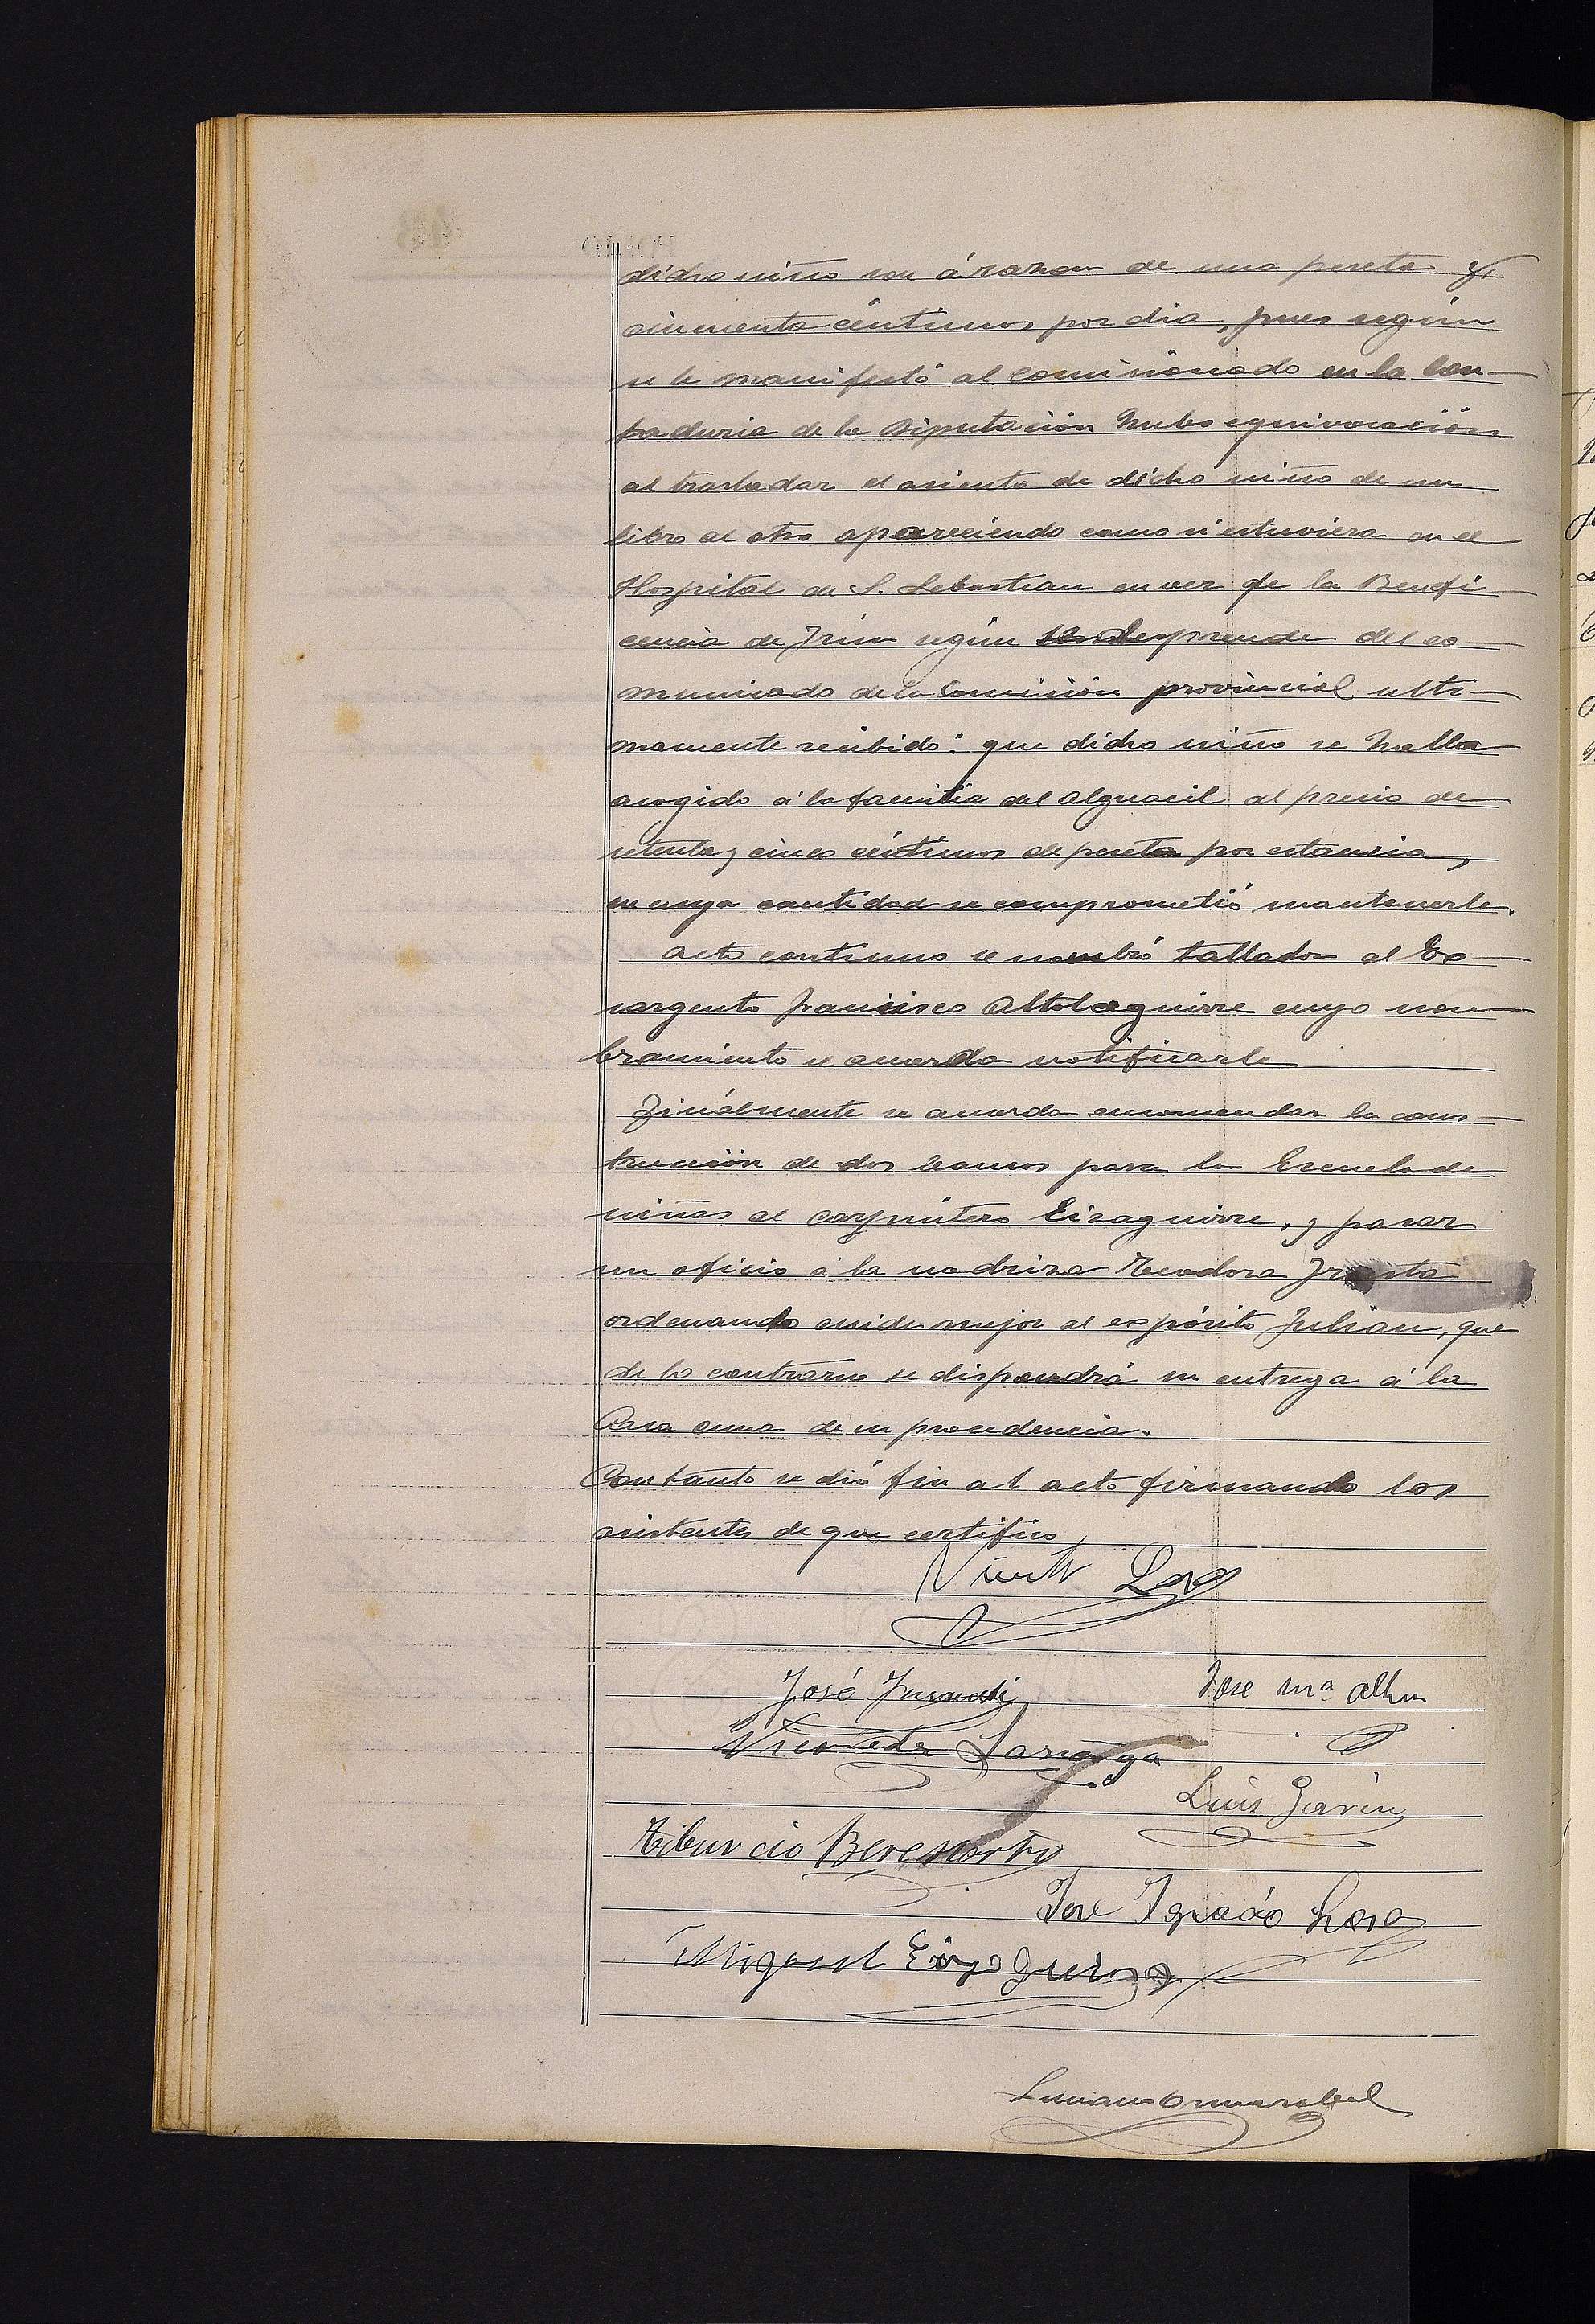 dicho niño son á razon de una peseta y
cincuenta céntimos por dia, pues según
se le manifestó al comisionado en la Con-
taduria de la Diputación hubo equivocación
al trasladar el asiento de dicho niño de un
libro al otro apareciendo como si estuviera en el
Hospital de S. Sebastian en vez de la Benefi
cencia de Irún según se desprende del co-
municado de la Comisión provincial ulti-
mamente recibido: que dicho niño se halla
acogido á la familia del alguacil al precio de
setenta y cinco céntimos de peseta por estancia,
en cuya cantidad se comprometió mantenerle.
Acto continuo se nombró tallador al Ex-
sargento Francisco Altolaguirre cuyo nom-
bramiento se acuerda notificarle
Finalmente se acuerda encomendar la cons-
trucción de dos bancos para la Escuela de
niñas al carpintero Eizaguirre, y pasar
un oficio á la nodriza Teodora
ordenando cuide mejor al expósito Julian, que
de lo contrario se dispondrá su entrega á la
Casa cuna de su procedencia.
Con tanto se dió fin al acto firmando los
asistentes de que certifico
Vicente
José
Jose Mª
Nicomedes
Luis Garin
Tiburcio
Jose Ignacio
Miguel
Luciano Ormazabal